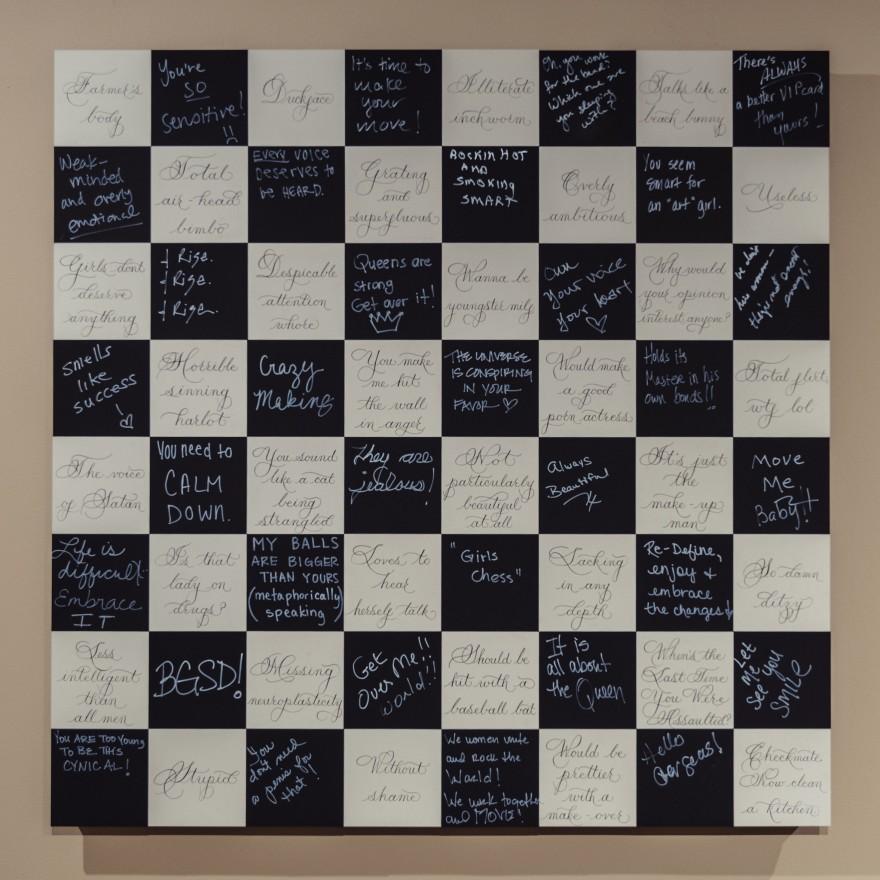 Farmer's
body
You're
SO
sensitive!
Duckface
It's time to
make
your
move!
Illiterate
inch worm
Oh, you work
for the band?
Which one are
you sleeping
with?
Talks like a
beach bunny
There's
ALWAYS
a better VIP card
than
yours!
Weak-
minded
and overly
emotional
Total
air-head
bimbo
EVERY VOICE
DESERVES TO
BE HEARD.
Grating
and
superfluous
ROCKIN HOT
AND
SMOKING
SMART
Overly
ambitious
You seem
smart for
an "art" girl.
Useless
Girls dont
deserve
anything
I Rise.
I Rise.
I Rise.
Despicable
attention
whore
Queens are
strong
Get over it!
Wanna be
youngster milf
own
your voice
your heart
Why would
your opinion
interest anyone?
enough!!
smells
like
success
!
Horrible
sinning
harlot
Crazy
Making
You make
me hit
the wall
in anger
THE UNIVERSE
IS CONSPIRING
IN YOUR
FAVOR
Would make
a good
porn actress
Holds its
Master in his
own bonds!!
Total flirt
wtf lol
The voice
of Satan
You need to
CALM
DOWN.
You sound
like a cat
being
strangled
they are
jealous!
Not
particularly
beautiful
at all
Always
Beautiful
It's just
the
make-up
man
Move
Me,
Baby!!
Life is
difficult-
Embrace
IT
Is that
lady on
drugs?
MY BALLS
ARE BIGGER
THAN YOURS
(metaphorically
speaking)
Loves to
hear
herself talk
"Girls
Chess"
Lacking
in any
depth
Re-Define,
enjoy +
embrace
the changes
So damn
ditzy
Less
intelligent
than
all men
BGSD!
Missing
neuroplasticity
Get
Over Me!!
World!!
Should be
hit with a
baseball bat
It is
all about
the Queen
When's the
Last Time
You Were
Assaulted?
Let
Me
See You
Smile
YOU ARE TOO YOUNG
TO BE THIS
CYNICAL!
Stupid
You
don't need
a penis for
that!
Without
shame
We women unite
and Rock the
World!
We work together
and MOVE!
Would be
prettier
with a
make-over
Hello
Gorgeous!
Checkmate
Now clean
a kitchen